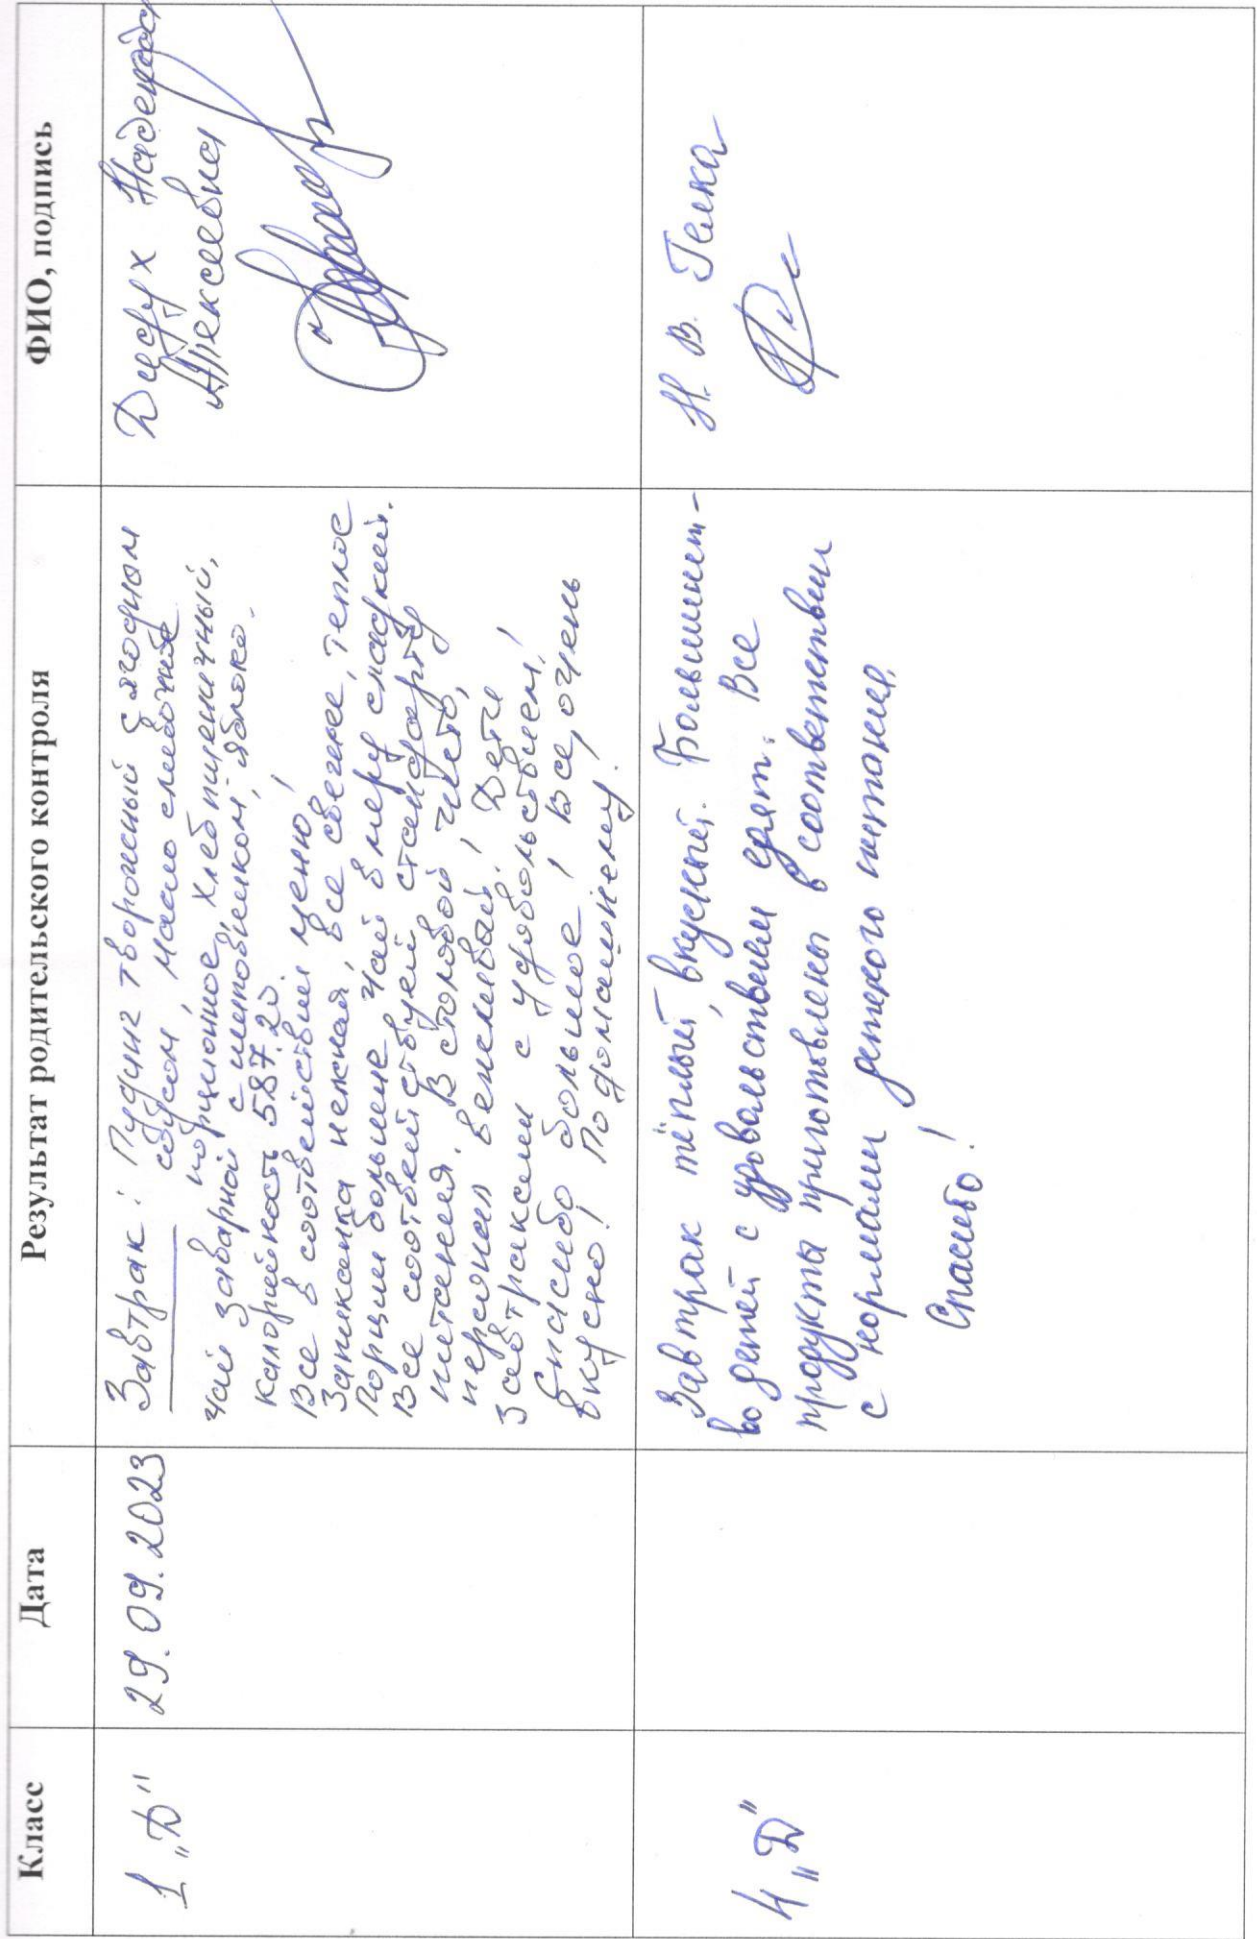 Класс Дата Результат родительского контроля ФИО, подпись
1 „Д" 29.09.2023
Завтрак: Пудинг творожный с ягодным
соусом, масло сливочное
порционное, хлеб пшеничный,
чай заварной с шиповником, яблоко.
калорийность 587.20
Все в соотвействии меню!
Запиканка нежная, все свежее, теплое
Порции большие чай в меру сладкий.
Все соотвействует стандарту
питания. В столовой чисто,
персонал вежливый! Дети
завтракали с удовольствием!
Спасибо большое! Все, очень
вкусно! По домашнему!
Надежда
Алексеевна
4 „Д"
Завтрак тёплый, вкусный. Большинст-
во детей с удовольствием едят. Все
продукты приготовлены в соответствии
с нормами детского питания.
Спасибо!
Н. В. Гелка